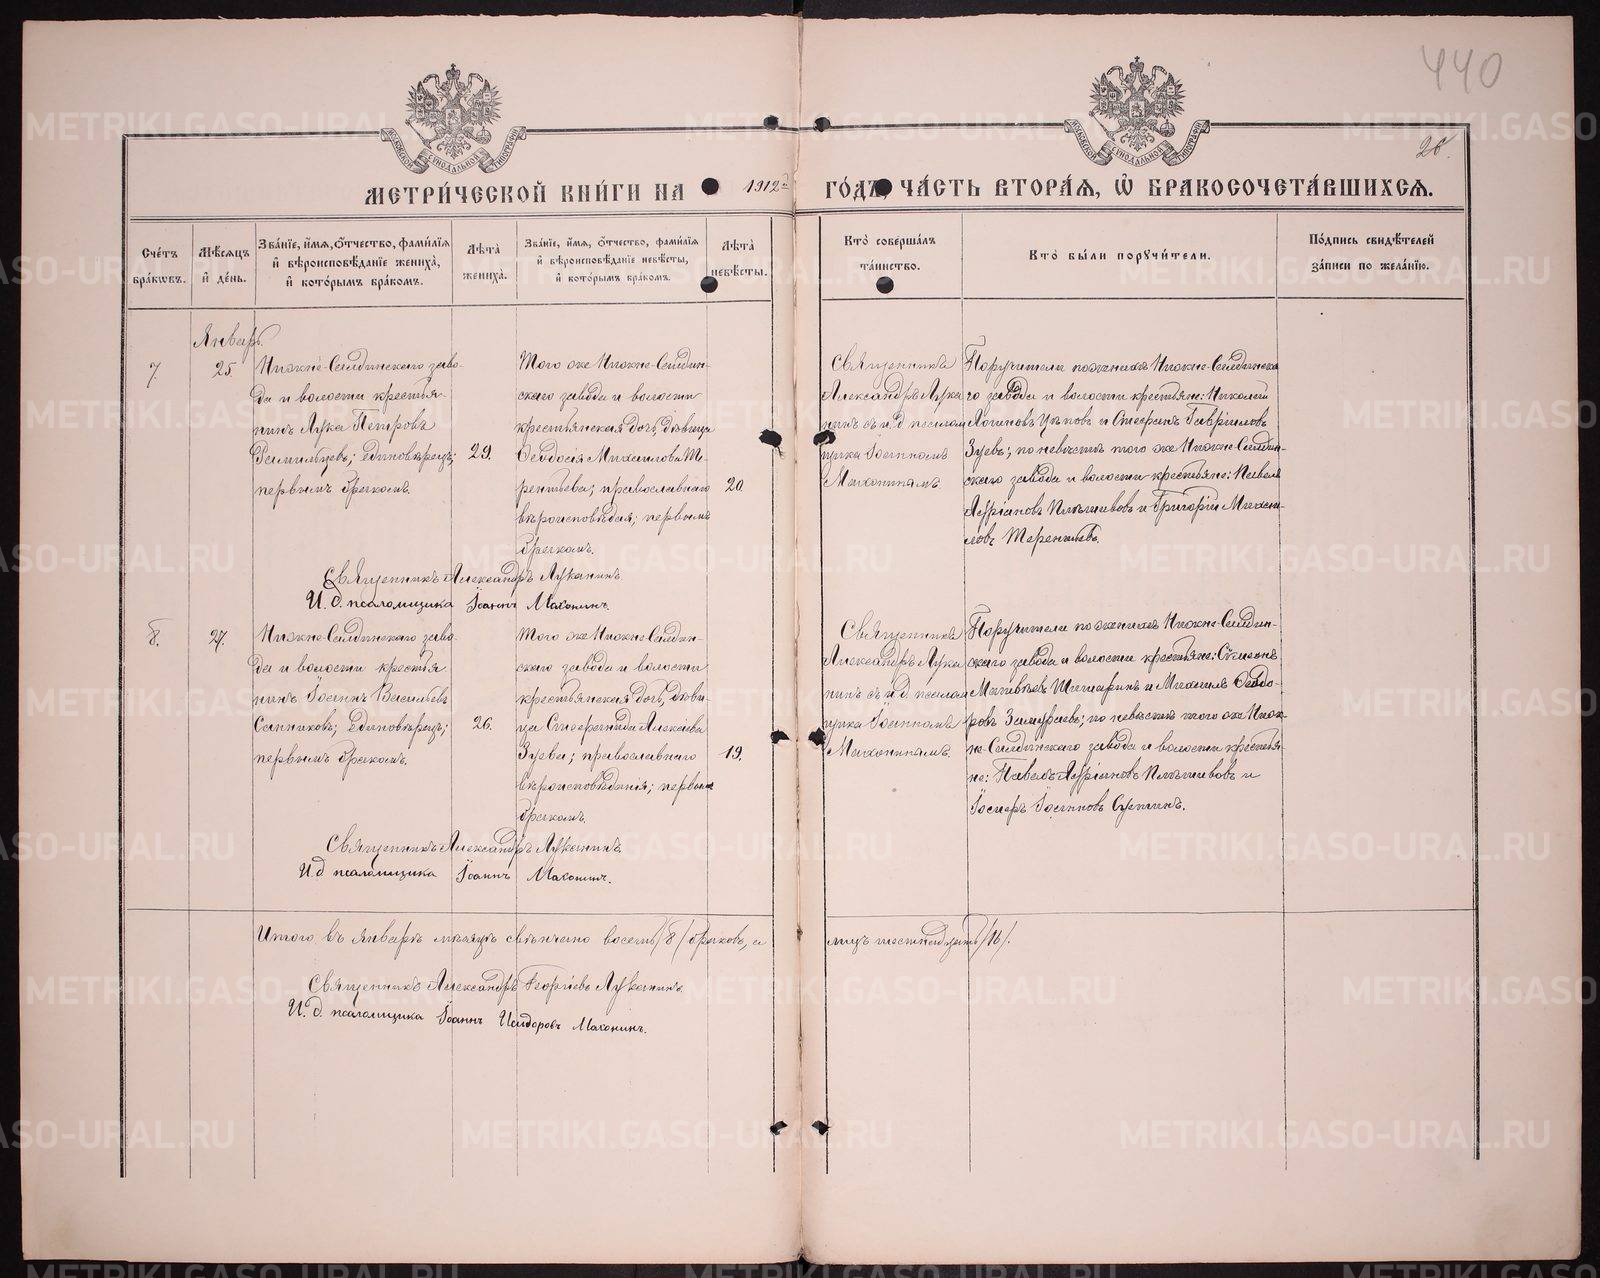 440
26.
МОСКОВСКОЙ СѴНОДАЛЬНОЙ ТИПОГРАФІИ
МОСКОВСКОЙ СѴНОДАЛЬНОЙ ТИПОГРАФІИ
МЕТРИ́ЧЕСКОЙ КНИ́ГИ НА 1912 ГО́ДЪ, ЧА́СТЬ ВТОРА́Я, Ѡ БРАКОСОЧЕТА́ВШИХСЯ.
Сче́тъ бра́кѡвъ.
Мѣ́сяцъ и де́нь.
Зва́нїе, и́мя, о́тчество, фами́лїя и вѣроисповѣ́данїе жениха́, и кото́рымъ бра́комъ.
Лѣ́та жениха́.
Зва́нїе, и́мя, о́тчество, фами́лїя и вѣроисповѣ́данїе невѣ́сты, и кото́рымъ бра́комъ.
Лѣ́та невѣ́сты.
Кто̀ соверша́лъ та́инство.
Кто̀ бы́ли порꙋчи́тели.
По́дпись свидѣ́телей за́писи по жела́нїю.
Январь.
7.
25.
Нижне-Салдинскаго заво-
да и волости крестья-
нинъ Лука Петровъ
единовѣрецъ;
первымъ бракомъ.
29.
Того же Нижне-Салдин-
скаго завода и волости
крестьянская дочь, дѣвица
Ѳеодосія Михаилова Те-
рентьева; православнаго
вѣроисповѣдая; первымъ
бракомъ.
20.
Священникъ
Александръ Лука
нинъ съ и. д. псалом
щика Іоанномъ
Махонинымъ.
Поручители по женихѣ Нижне-Салдинска
го завода и волости крестьяне: Николай
Логиновъ и Стефанъ Гавриловъ
Зуевъ; по невѣстѣ того же Нижне-Салдин-
скаго завода и волости крестьяне: Павелъ
Адріановъ и Григорій Михаи-
ловъ Терентьевъ.
Священникъ Александръ Луканинъ.
И. д. псаломщика Іоаннъ Махонинъ.
8.
27.
Нижне-Салдинскаго заво
да и волости крестья
нинъ Іоаннъ Васильевъ
Санниковъ; единовѣрецъ;
первымъ бракомъ.
26.
Того же Нижне-Салдин-
скаго завода и волости
крестьянская дочь, дѣви
ца Стефанида Алексѣева
Зуева; православнаго
вѣроисповѣданія; первымъ
бракомъ.
19.
Священникъ
Александръ Лука
нинъ съ и. д. псалом
щика Іоанномъ
Махонинымъ.
Поручители по женихѣ Нижне-Салдин-
скаго завода и волости крестьяне: Симеонъ
Матвѣевъ и Михаилъ Ѳеодо-
ровъ Замураевъ; по невѣстѣ того же Ниж-
не-Салдинскаго завода и волости крестья-
не: Павелъ Адріановъ и
Іосифъ Іоанновъ
Священникъ Александръ Луканинъ.
И. д. псаломщика Іоаннъ Махонинъ.
Итого въ январѣ мѣсяцѣ свѣнчано восемь /8/ браковъ, а
лицъ шестнадцать /16/.
Священникъ Александръ Георгіевъ Луканинъ.
И. д. псаломщика Іоаннъ Исидоровъ Махонинъ.
METRIKI.GASO-URAL.RU